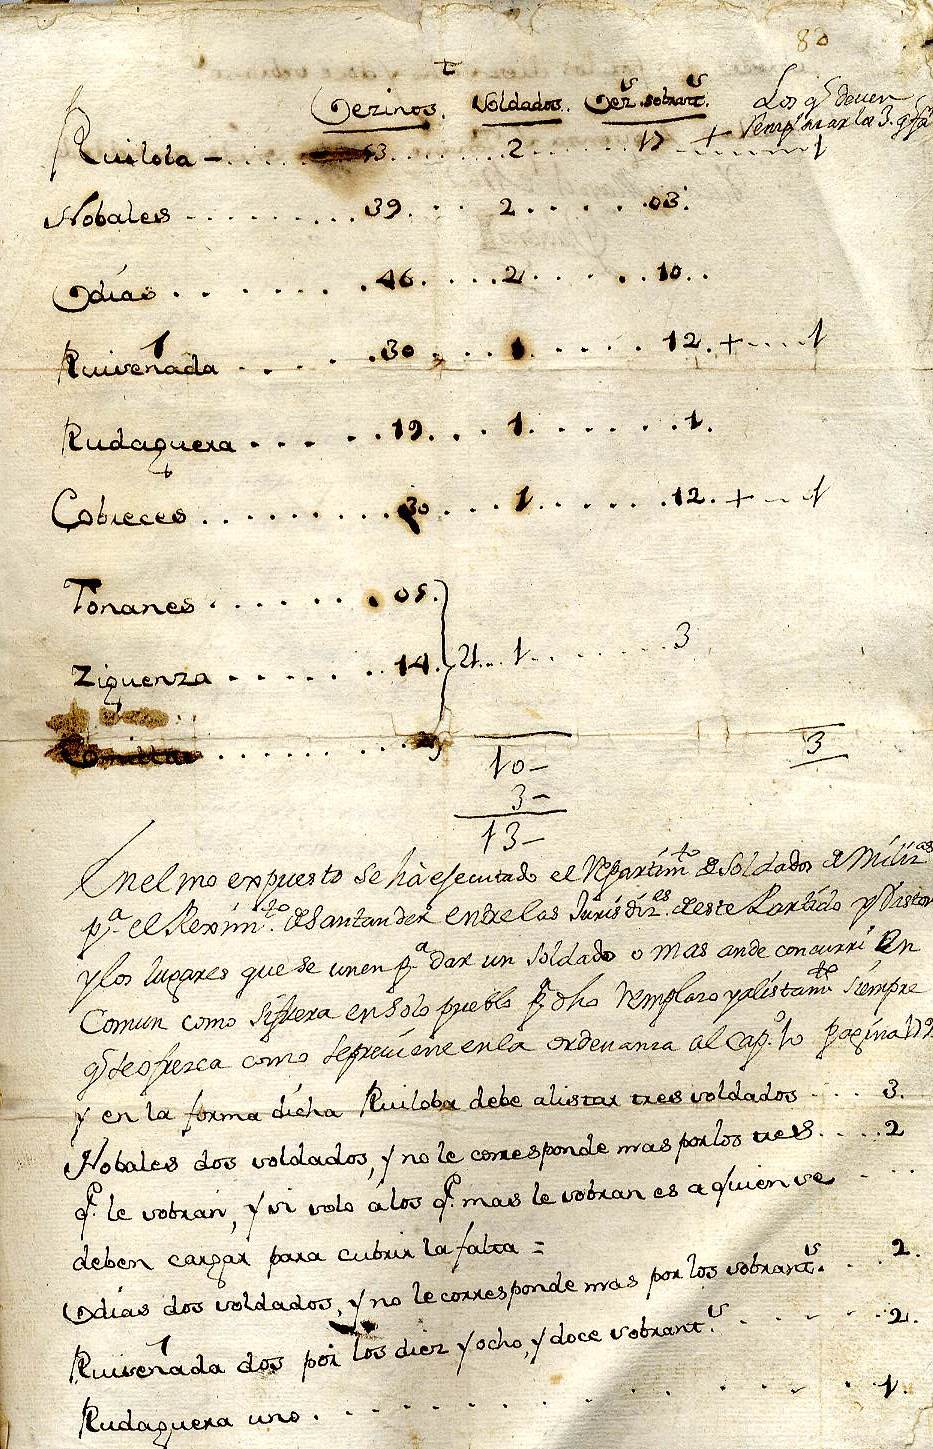 80
Vezinos. Soldados. Vez.s sobrant.s Los q.e deven
Ruiloba - 53 2 17 + 1
Nobales 39 2 03
Odías 46 2 10
Ruiseñada 30 1 12 + 1
Rudaguera 19 1 1
Cobreces 30 1 12 + 1
Tonanes 05
21 1 3
Ziguenza 14
Comillas
10 - 3
3 -
13 -
En el mo expuesto se há ejecutado el Repartim.to de Soldados de Miliz.as
p.a el Rexim.to de Santander entre las Jurisdiz.es de este Partido y
y los lugares que se unen p.a dar un Soldado o mas an de concurrir en
Comun como si fuera en solo pueblo p.a dho Remplazo y alistam.to siempre
q.e se ofrezca como se previene en la ordenanza al Cap.o 10 pagina
y en la forma dicha Ruiloba debe alistar tres soldados 3.
Nobales dos soldados, y no le corresponde mas por los tres 2
q.e le sobran, y si solo a los q.e mas le sobran es a quien se
deben cargar para cubrir la falta =
Odías dos soldados, y no le corresponde mas por los sobrant.s 2.
Ruiseñada dos por los diez y ocho, y doce sobrant.s 2.
Rudaguera uno 1.